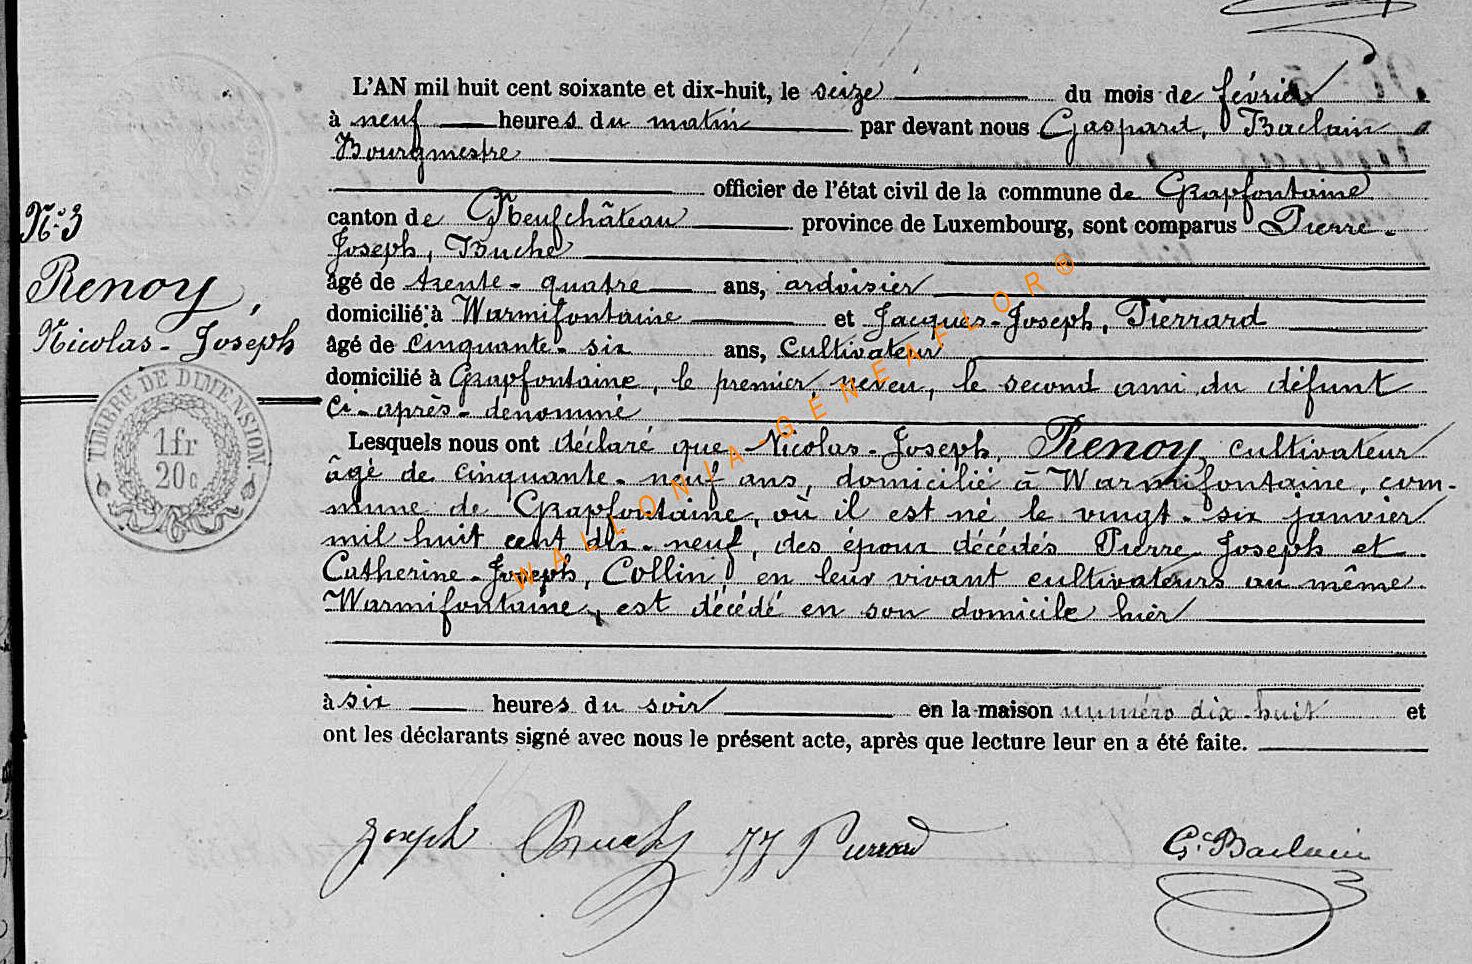 L'AN mil huit cent soixante et dix-huit, le seize du mois de février
à neuf heures du matin par devant nous Gaspard, Baclain
Bourgmestre
officier de l'état civil de la commune de Grapfontaine
canton de Neufchâteau province de Luxembourg, sont comparus Pierre-
Joseph, Buche
âgé de trente-quatre ans, ardoisier
domicilié à Warmifontaine et Jacques-Joseph, Pierrard
âgé de cinquante-six ans, Cultivateur
domicilié à Grapfontaine, le premier neveu, le second ami du défunt
ci-après-denommé
Lesquels nous ont déclaré que Nicolas-Joseph, Renoy, cultivateur
âgé de cinquante-neuf ans, domicilié à Warmifontaine, com-
mune de Grapfontaine, où il est né le vingt-six janvier
mil huit cent dix-neuf, des époux décédés Pierre-Joseph et
Catherine-Joseph, Collin, en leur vivant cultivateurs au même
Warmifontaine, est décédé en son domicile hier
à six heures du soir en la maison numéro dix-huit et
ont les déclarants signé avec nous le présent acte, après que lecture leur en a été faite.
N.º 3
Renoy,
Nicolas-Joseph
TIMBRE DE DIMENSION.
1 fr
20 c
WALLONIA-GENEAFLOR®
Joseph Buche JJ Pierrard G. Baclain